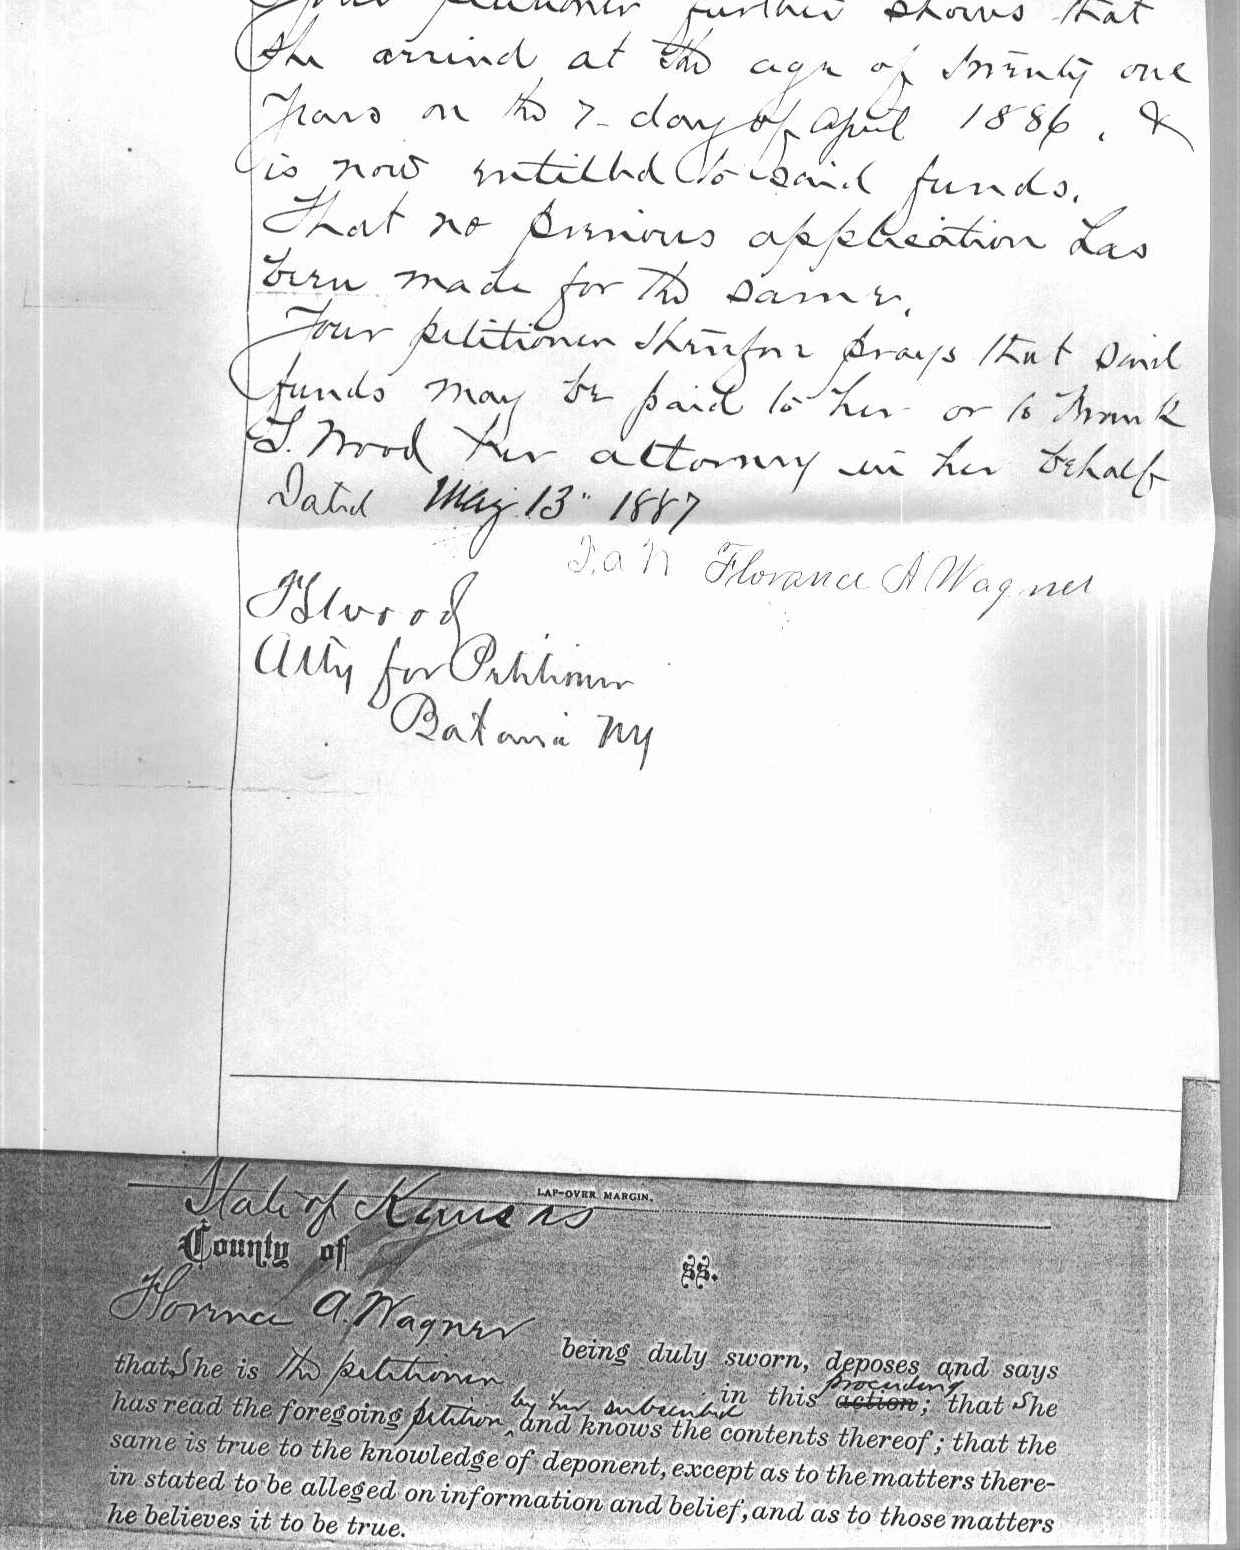 Your petitioner further shows that
she arrived at the age of twenty one
years on the 7 day of April 1886, &
is now entitled to said funds.
That no previous application has
been made for the same.
Your petitioner therefore prays that said
funds may be paid to her or to Frank
S. Wood her attorney in her behalf
Dated May 13" 1887
Florance A Wagner
Wood
Atty for Petitioner
Batavia NY
LAP-OVER MARGIN.
State of Kansas
County of
ss.
Florence A. Wagner
being duly sworn, deposes and says
that She is the petitioner in this proceeding action; that She
has read the foregoing petition by her subscribed and knows the contents thereof; that the
same is true to the knowledge of deponent, except as to the matters there-
in stated to be alleged on information and belief, and as to those matters
he believes it to be true.